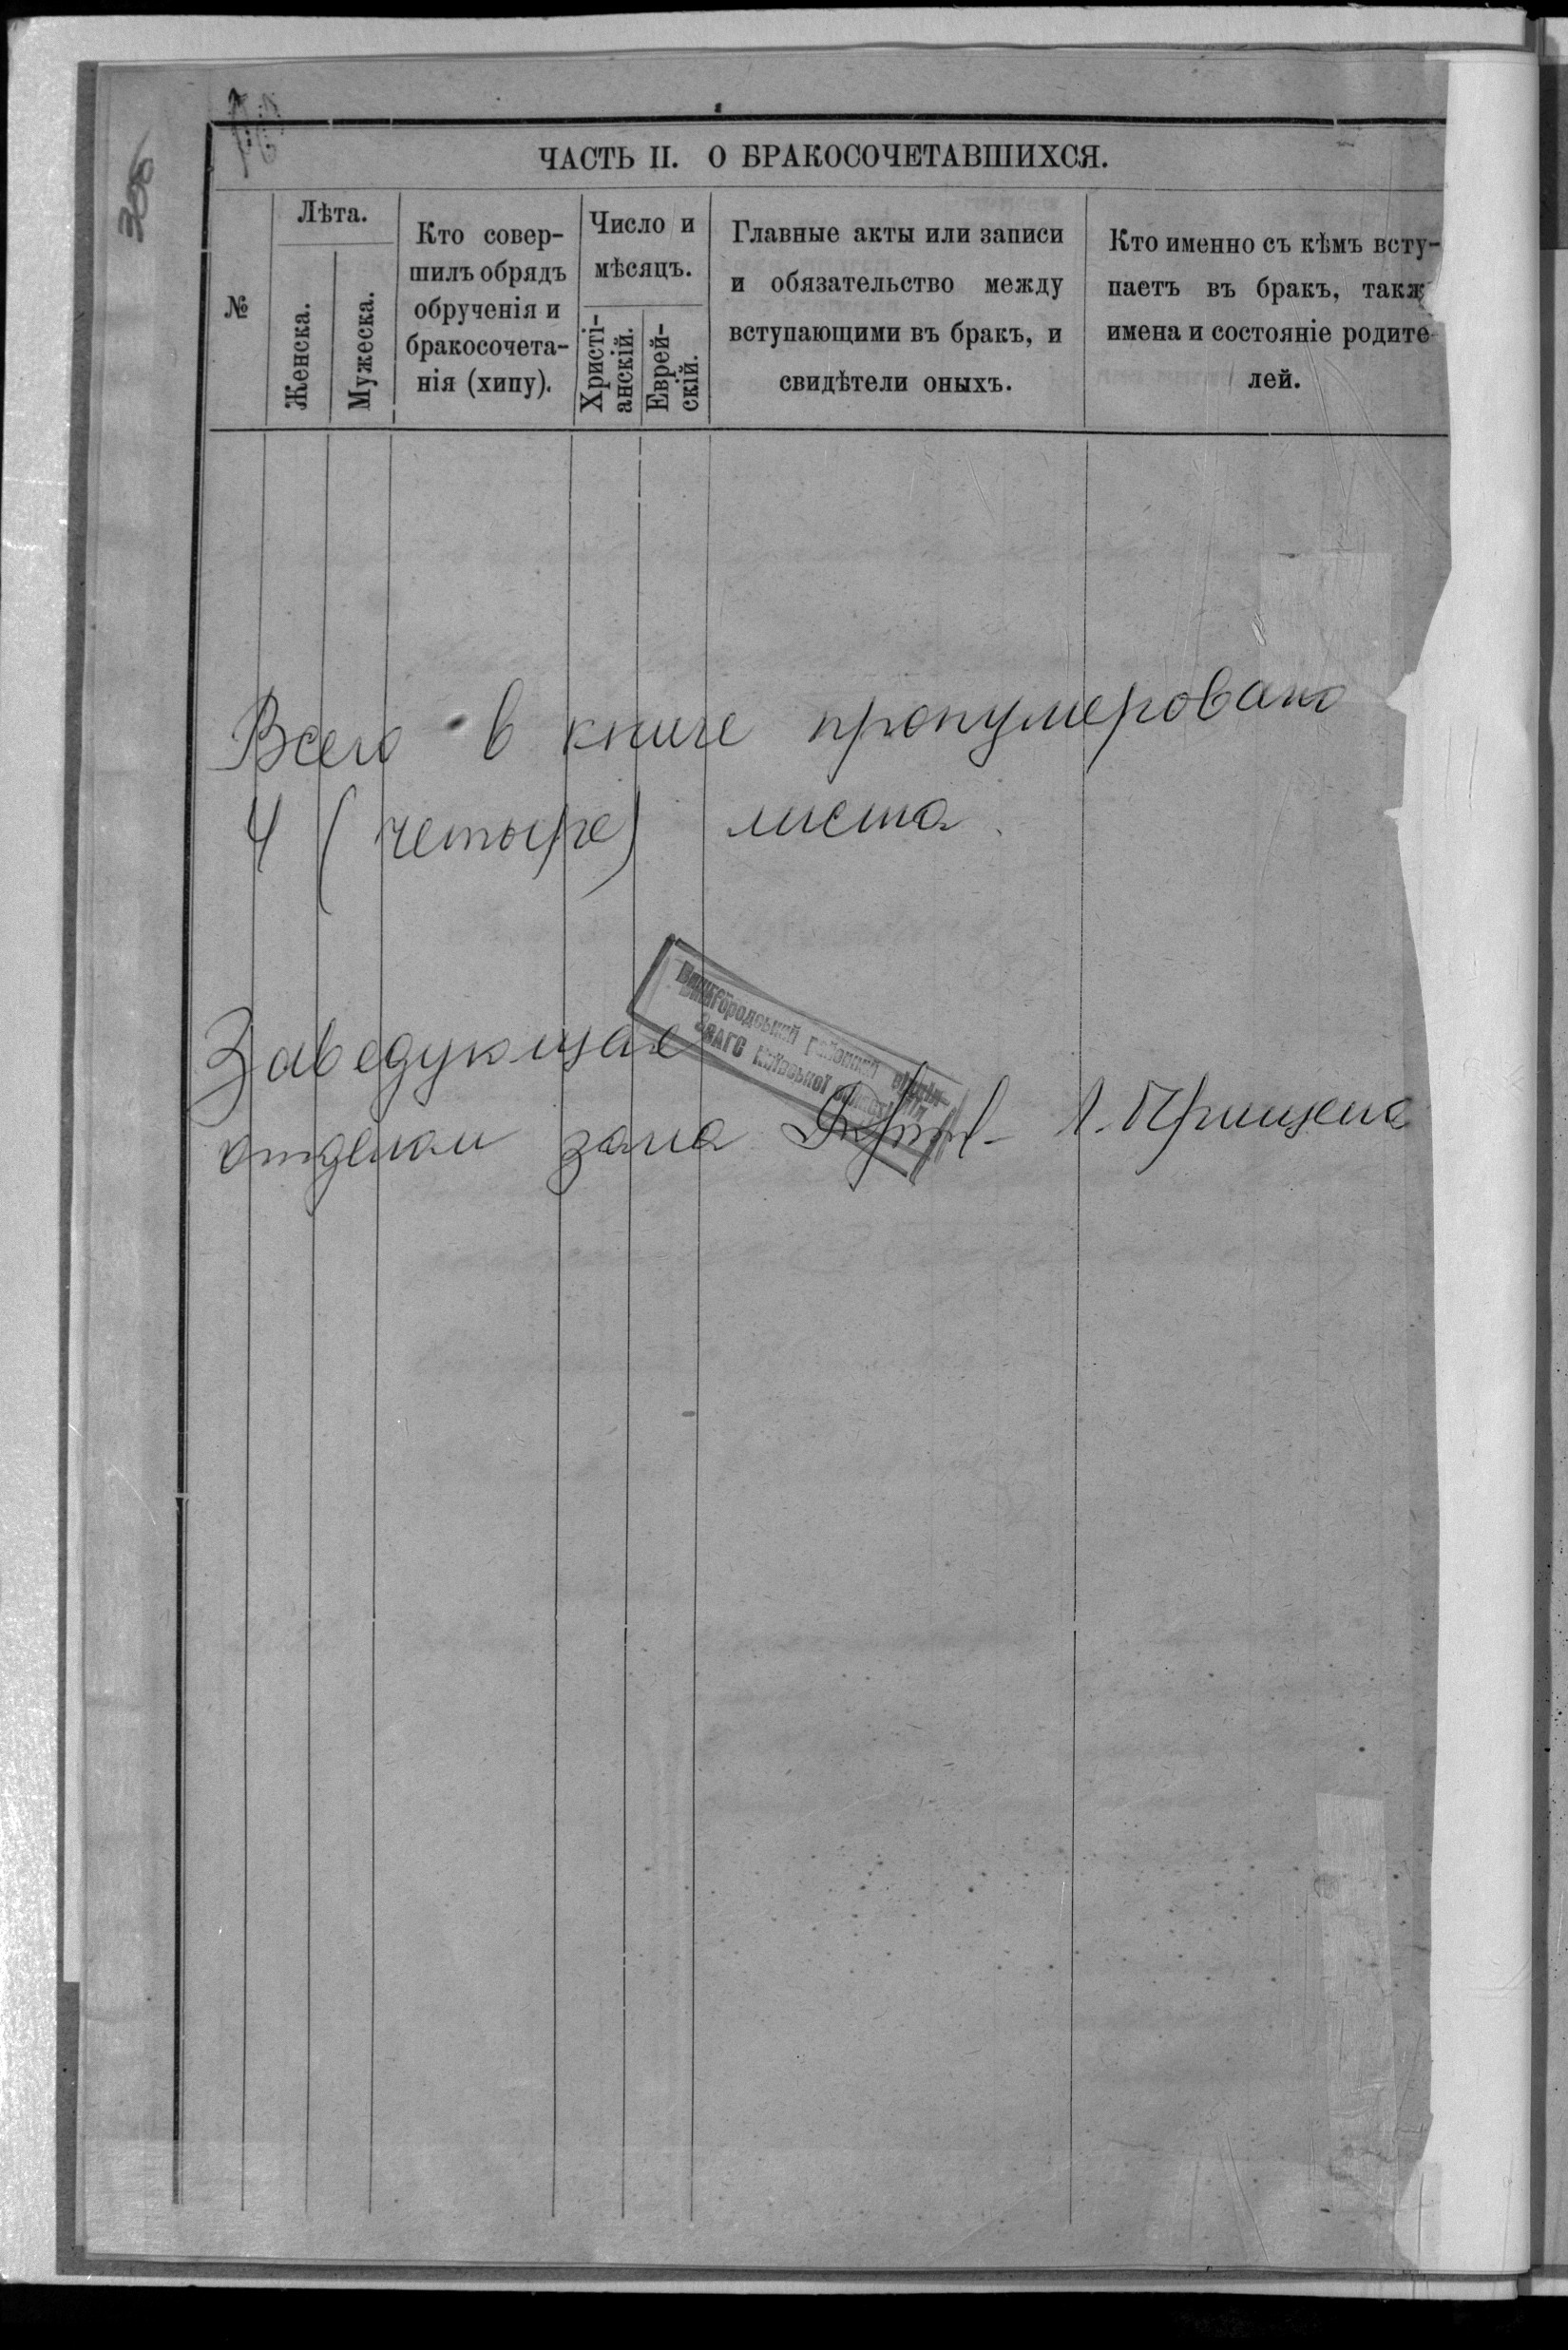 306
ЧАСТЬ II. О БРАКОСОЧЕТАВШИХСЯ.
№
Лѣта.
Женска.
Мужеска.
Кто совер-
шилъ обрядъ
обрученія и
бракосочета-
нія (хипу).
Число и
мѣсяцъ.
Христі-
анскій.
Еврей-
скій.
Главные акты или записи
и обязательство между
вступающими въ бракъ, и
свидѣтели оныхъ.
Кто именно съ кѣмъ всту-
паетъ въ бракъ, такж
имена и состояніе родите-
лей.
Всего в книге пронумеровано
4 (четыре) листа.
Вишгородський районний відділ
ЗАГС Київської області
Заведующая
отделом загса Л.